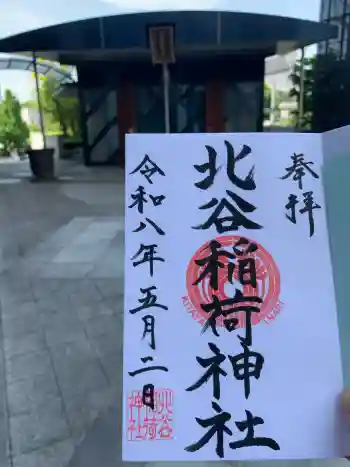 奉拝
北谷稲荷神社
令和八年五月二日
北谷
稲荷
神社